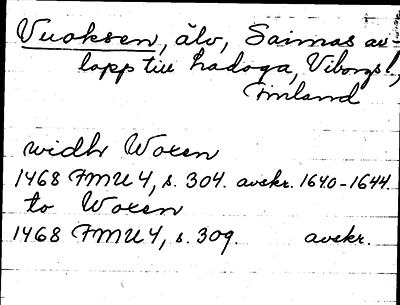 Vuoksen, älv, Saimas av-
lopp till Ladoga, Viborgs l.,
Finland
widh Woxen
1468 FMU 4, s. 304. avskr. 1640-1644.
to Woxen
1468 FMU 4, s. 309. avskr.